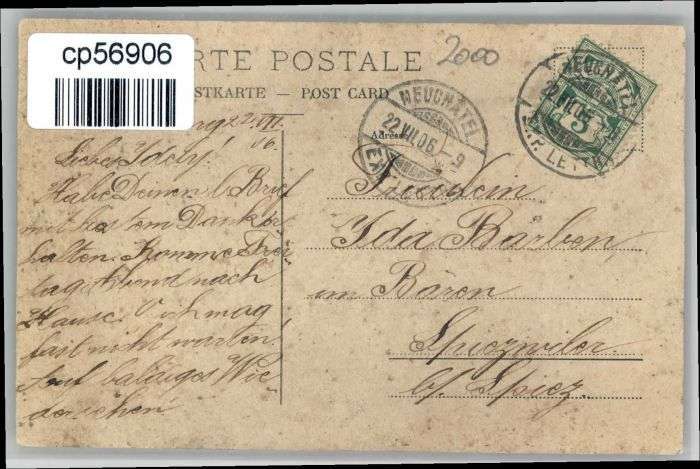 cp56906
CARTE POSTALE
POSTKARTE — POST CARD
2000
NEUCHATEL
22.VII.06.-9
Adresse
NEUCHATEL
22.VII.06
EXP. LET.
5
22. VII. 06.
Lieber Idely!
Habe Deinen l. Brief
mit bestem Dank er-
halten. Komme Frei-
tag Abend nach
Hause. O ich mag
fast nicht warten.
Auf baldiges Wie-
dersehen
Fräulein
Ida Barben
im Bären
Spiezwiler.
b/. Spiez.